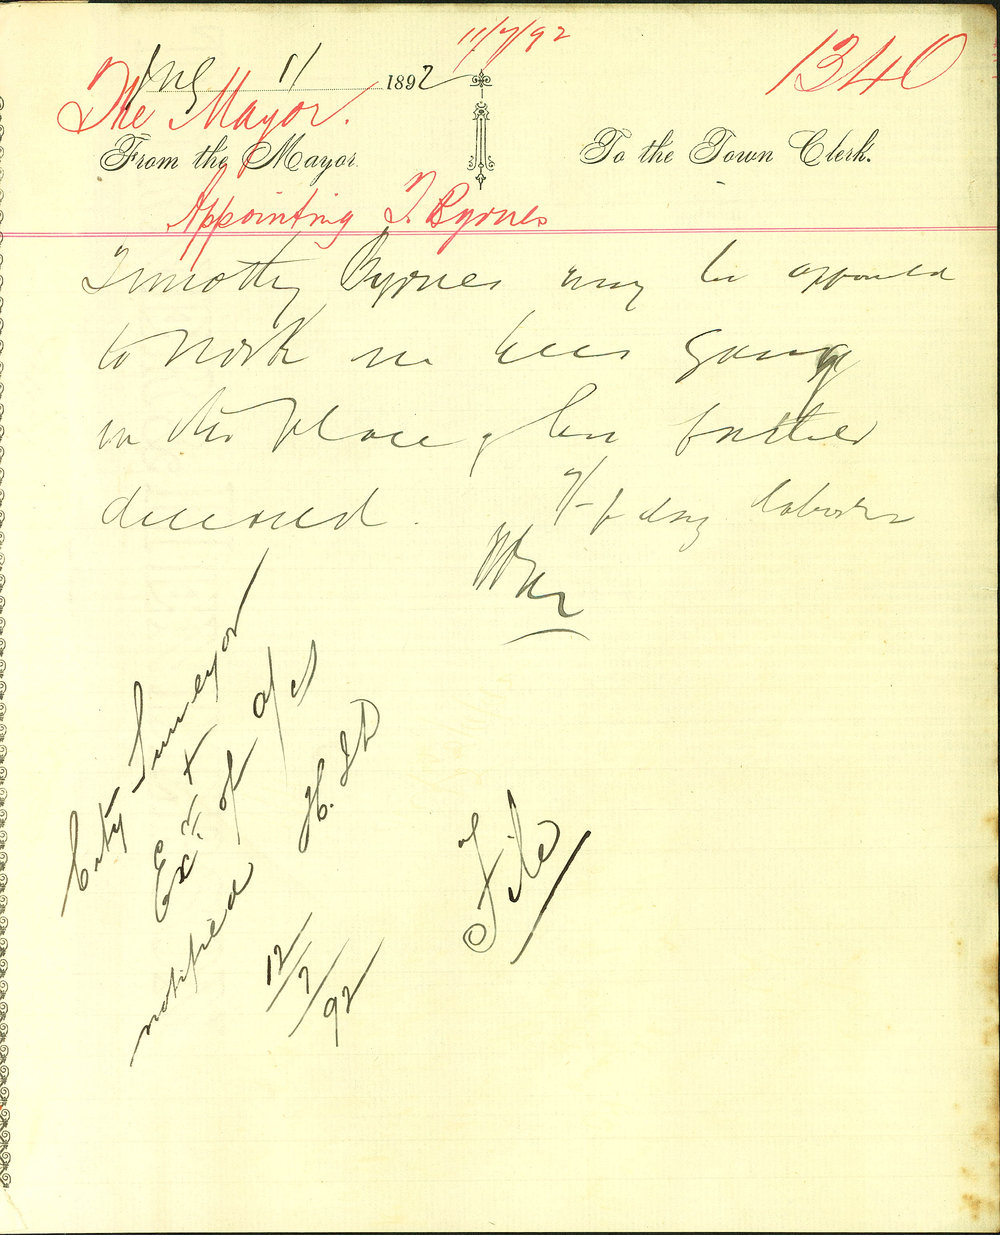 11/7/92
1340
July 11 1892
The Mayor.
From the Mayor
To the Town Clerk.
Appointing T. Byrnes
Timothy Byrnes may be appointed
to work in gang
in the place of his father
deceased.
7/- p day labourer
City Surveyor
Ex of a/cs
notified H.
12/7/92
File